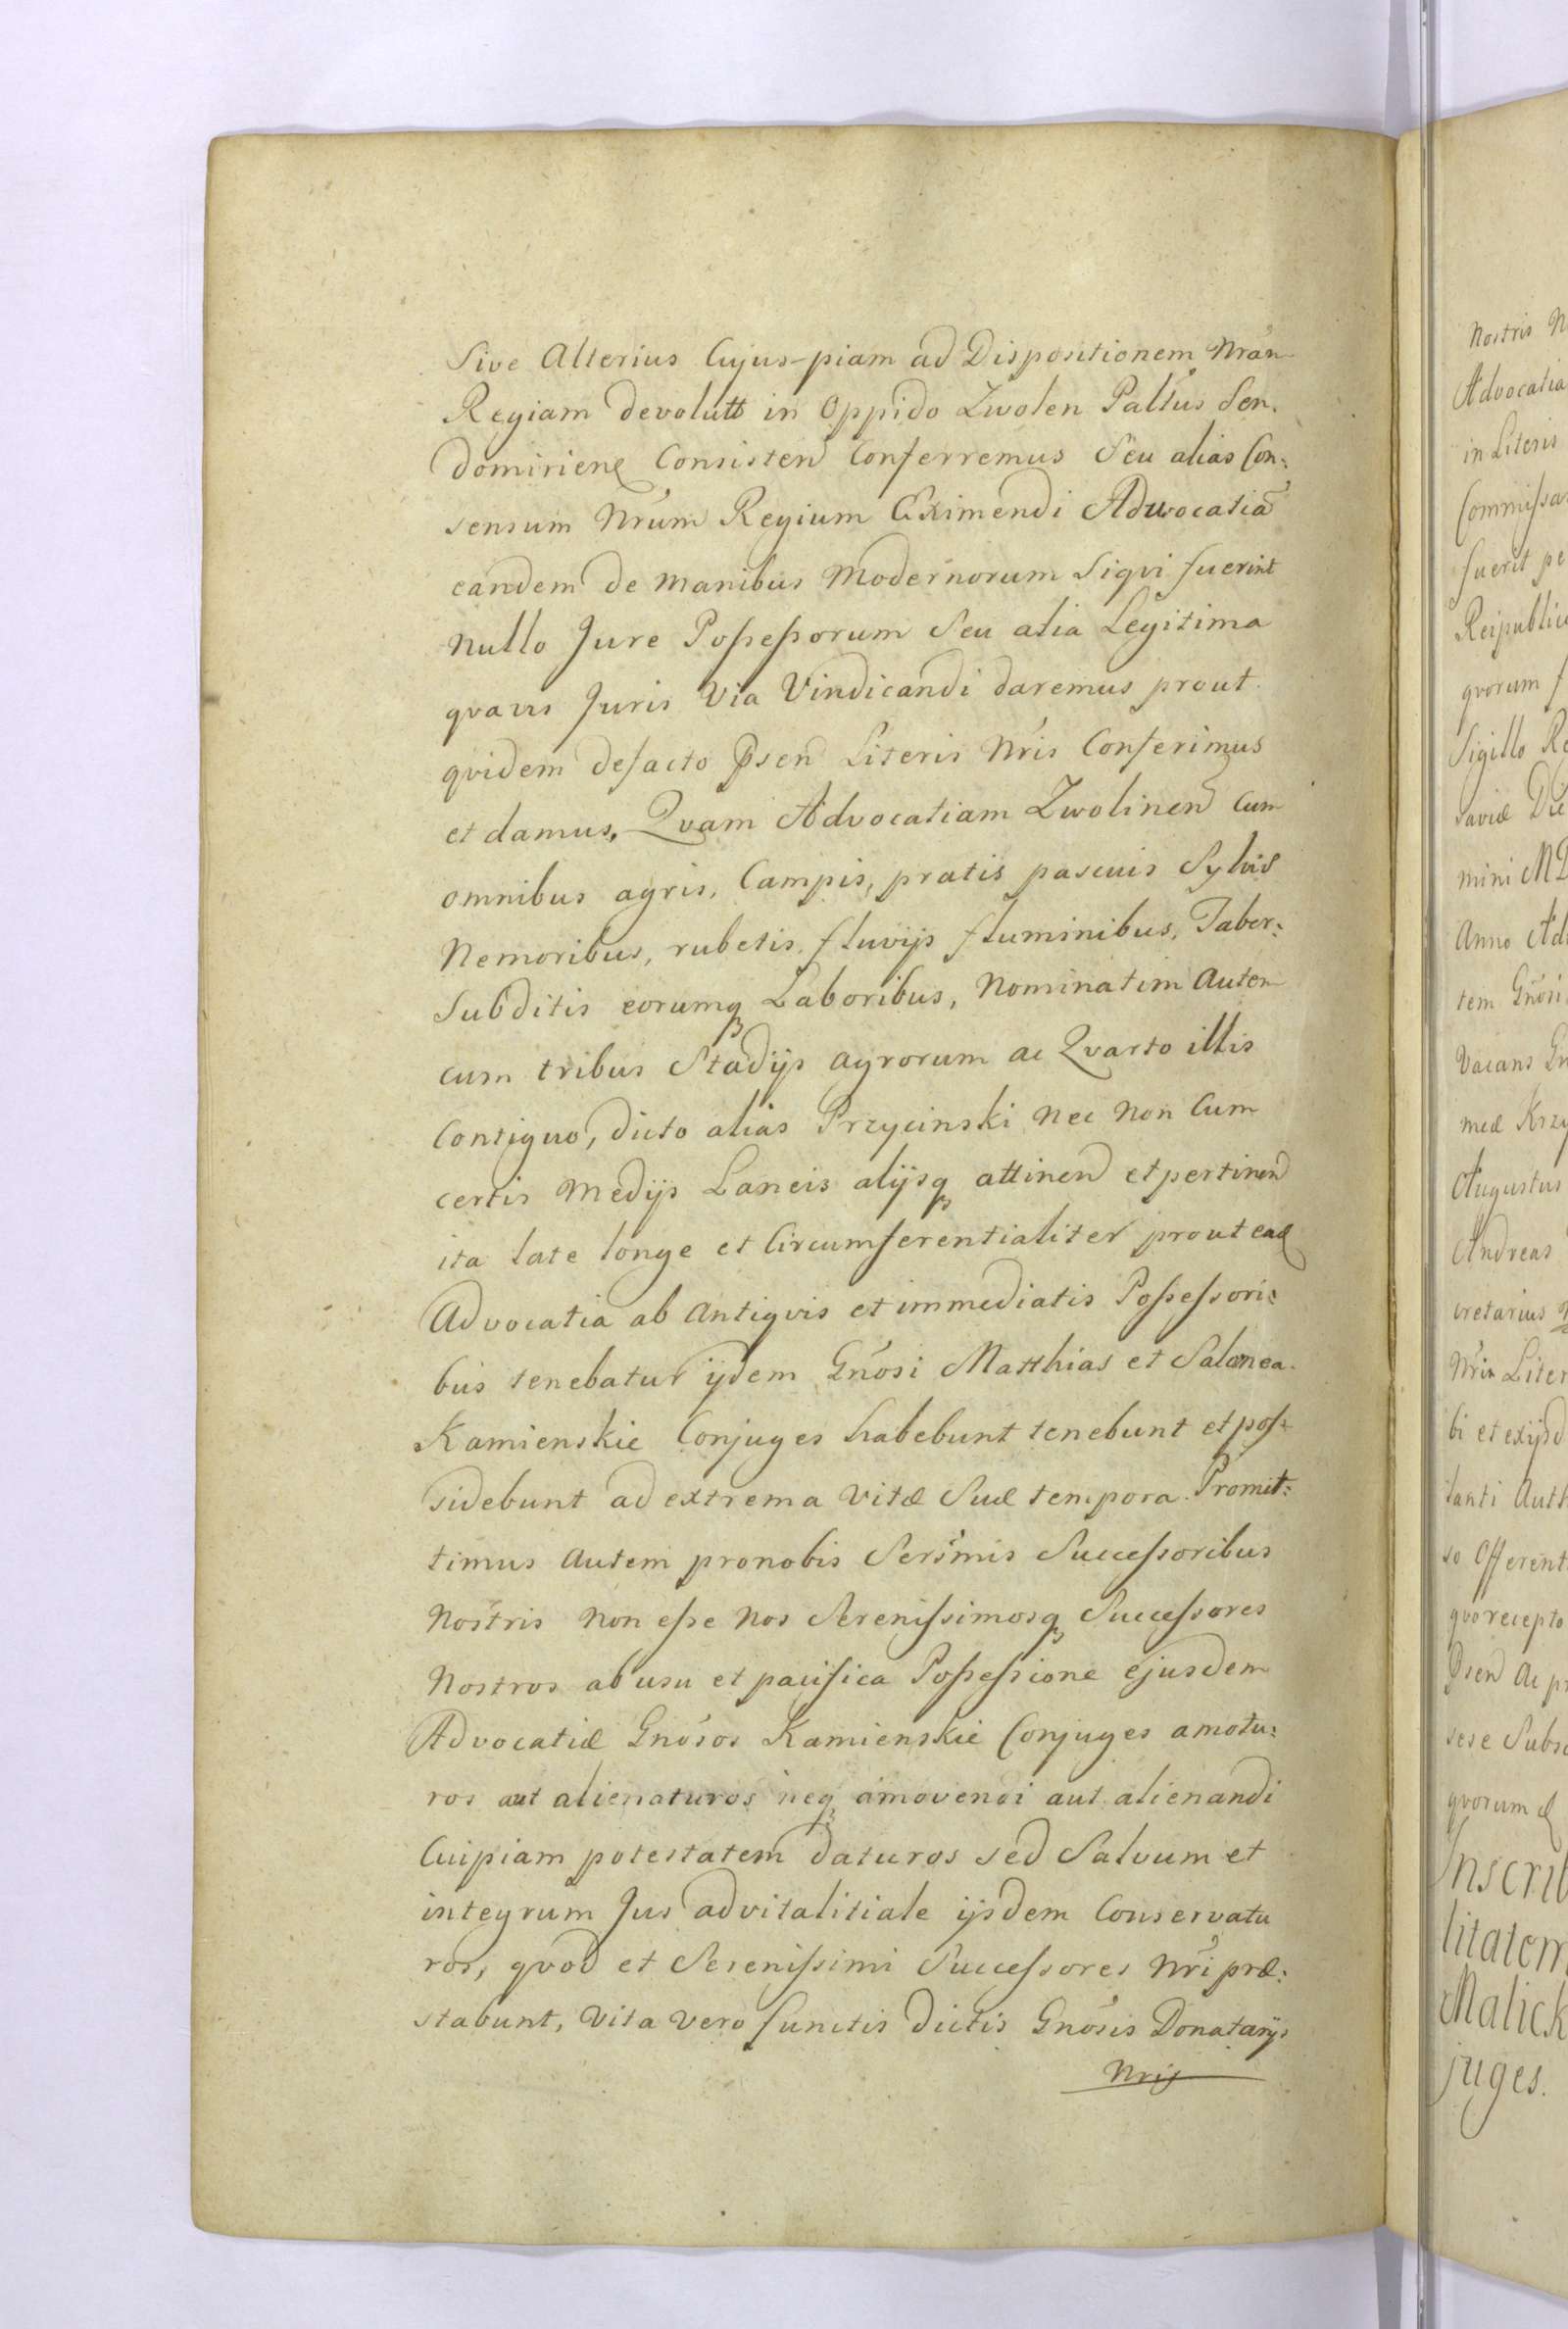 Sive Alterius Cujus-piam ad Dispositionem Nram
Regiam devolutt in Oppido Zwolen Pallus Sen.
domirienς Consisten Conferremus Seu alias Con:
sensum Nrum Regium Eximendi Advocatia
eandem de manibus Modernorum Siqvi fuerint
nullo Jure Poßeßorum Seu alia Legitima
qvavis Juris Via Vindicandi daremus prout
qvidem defacto Psen Literis Nris Conferimus
et damus, Qvam Advocatiam Zwolinen cum
omnibus agris, Campis, pratis pascuis Sylvis
Nemoribus, rubetis, fluvijs fluminibus, Taber:
Subditis eorumq Laboribus, Nominatim Autem
cum tribus Stadijs agrorum ac Qvarto illis
Contiguo, dicto alias Przycinski nec non Cum
certis Medijs Laneis alijsq attinen et pertinen
ita late longe et Circumferentialiter prout ead
Advocatia ab Antiqvis et immediatis Poßeßori:
bus tenebatur ijdem Gnosi Matthias et Salomea
Kamienskie Conjuges habebunt tenebunt et poß:
sidebunt ad extrema vitæ Suæ tempora. Promit:
timus Autem pronobis Sersmis Succeßoribus
Nostris non eße Nos Serenißimosq Succeßores
Nostros ab usu et pacifica Poßeßione ejusdem
Advocatiæ Gnosos Kamienskie Conjuges amotu:
ros aut alienaturos neq amovendi aut alienandi
Cuipiam potestatem daturos sed Salvum et
integrum Jus advitalitiale ijsdem Conservatu
ros, qvod et Serenißimi Succeßores Nri præ:
stabunt, Vita vero functis dictis Gnosis Donatarijs
Nris
Nostris
Advocatia
in Literis
Commißa
fuerit pe
Reipublicæ
qvorum
Sigillo Re
mini
Anno
tem Gnosi
Vacans
Krzy
Augustus
Andreas
cretarius
Nris Liter
bi et exijsd
tanti Auth
so Offerent
qvo recepto
Psen Ac pr
sese Subsc
qvorum
Inscrib
litatem
Malick
juges.